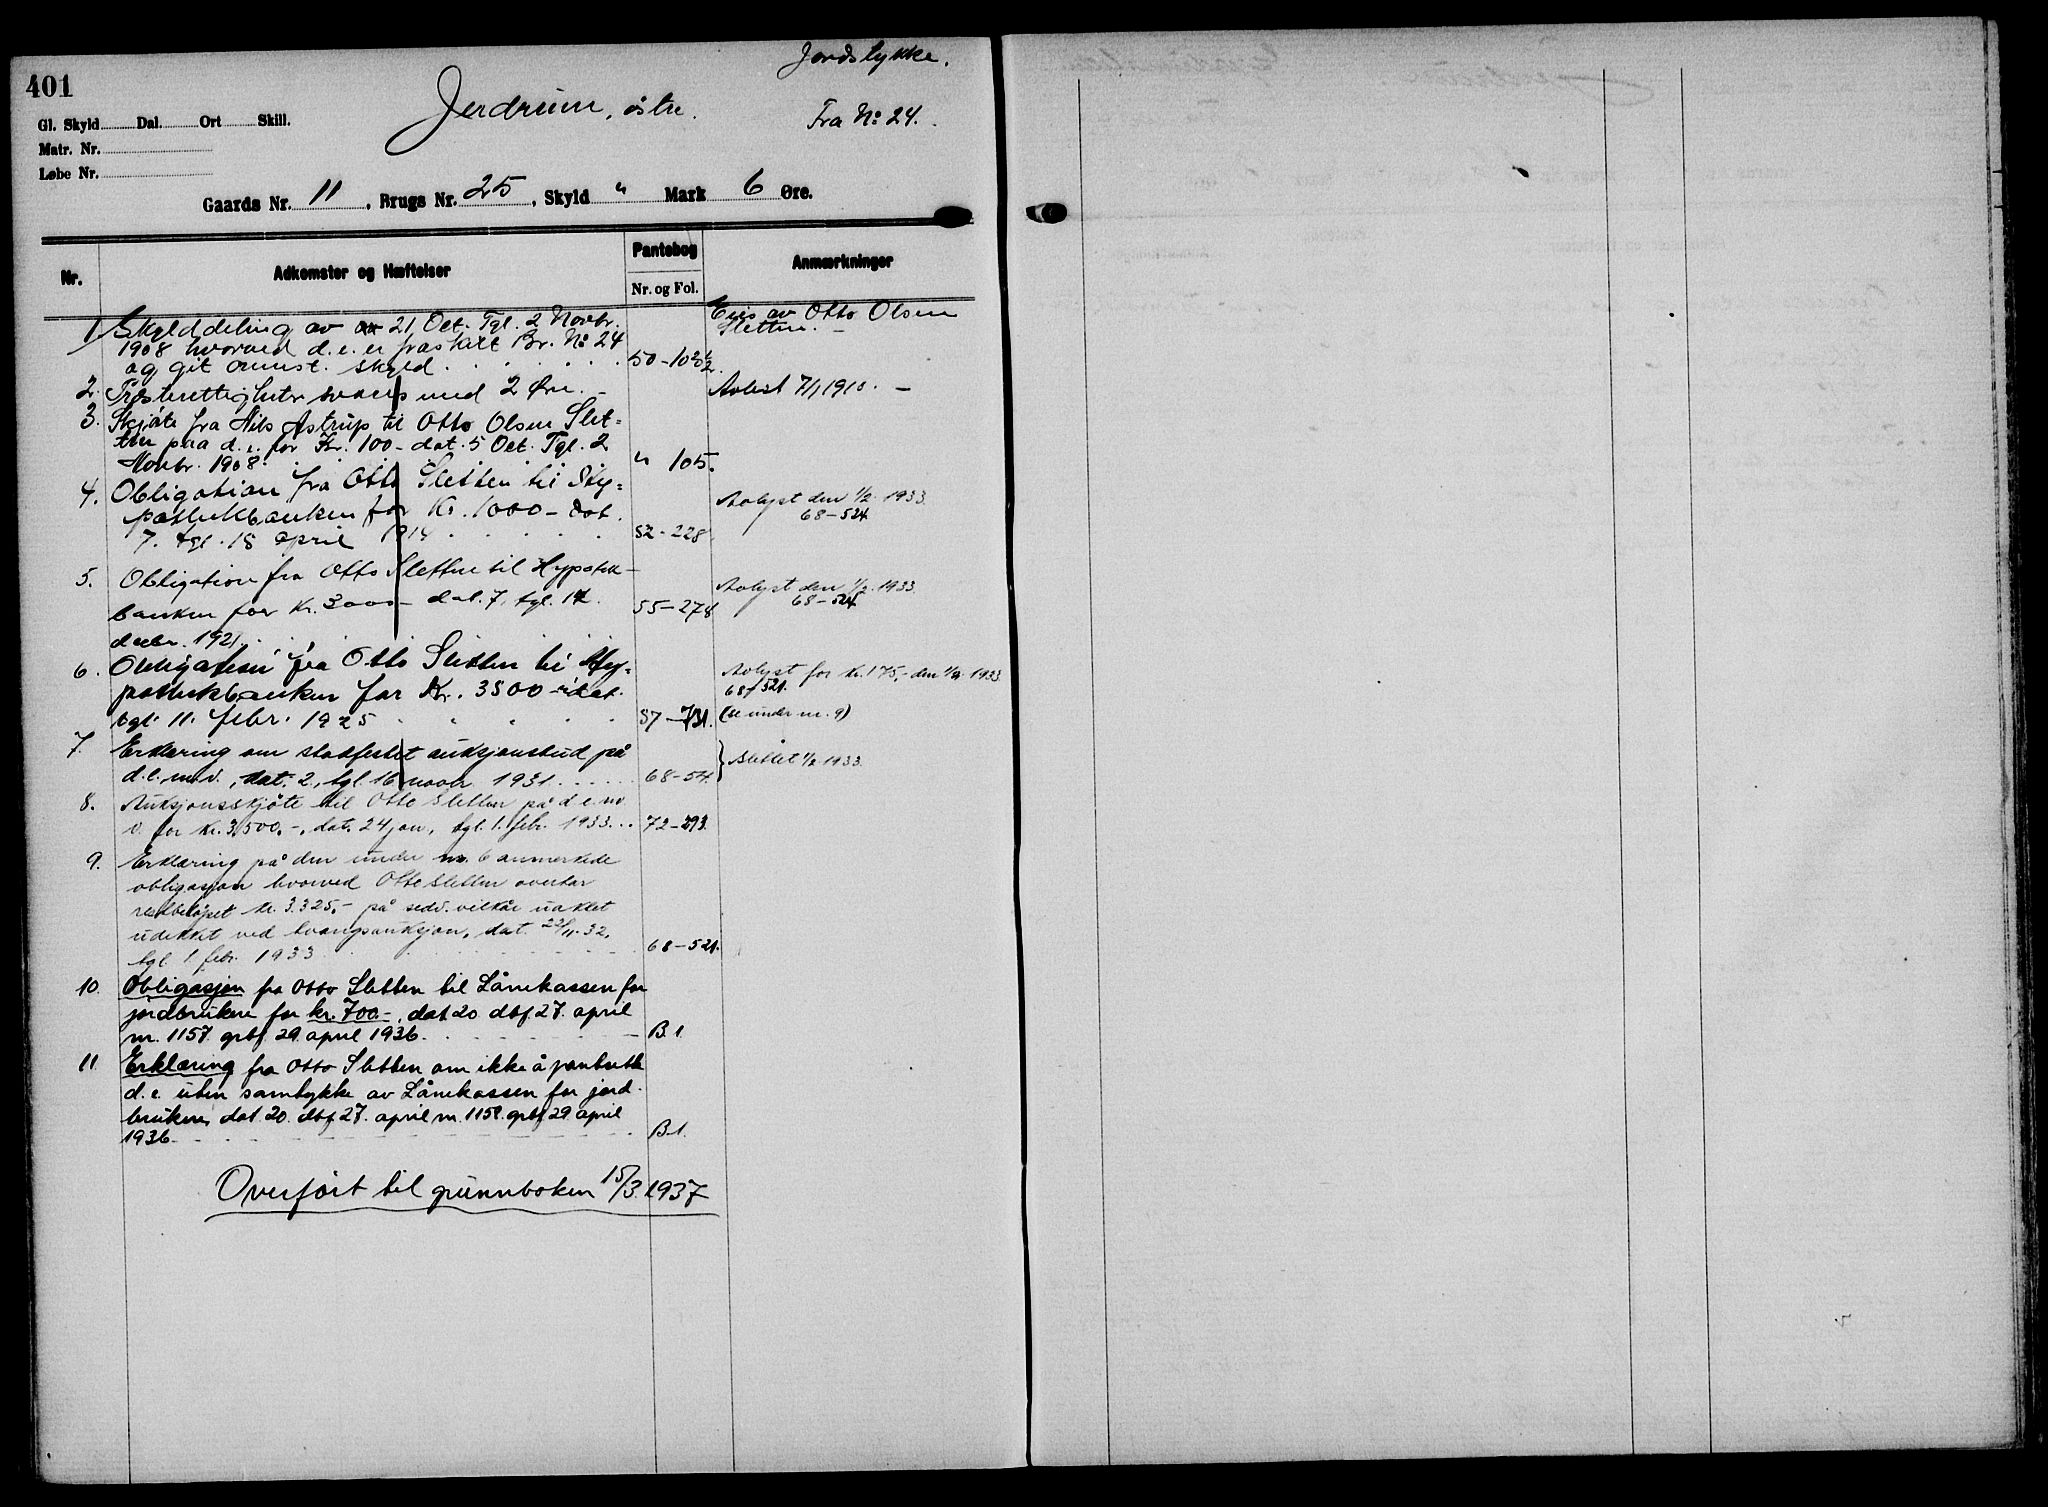 401
Jordstykke.
Jerdrum, østre.
Fra No 24.
Gl. Skyld Dal. Ort Skill.
Matr. Nr.
Løbe Nr.
Gaards Nr. 11, Brugs Nr. 25, Skyld " Mark 6 Øre.
Nr. Adkomster og Hæftelser Pantebog Nr. og Fol. Anmærkninger
1. Skylddeling av 21 Oct. Tgl. 2 Novbr.
1908 hvorved d. e. er fraskilt Br. No 24
og git ovennst. skyld. 50-102½.
Eies av Otto Olsen
Sletten. –
2. Præsterettigheter svares med 2 Øre. –
Avløst 7/1 1910. –
3. Skjøte fra Nils Astrup til Otto Olsen Slet=
ten paa d. e. for Kr. 100- dat. 5 Oct. Tgl. 2
Novbr. 1908. " 105.
4. Obligation fra Otto Sletten til Hy=
pothekbanken for Kr. 1000- dat.
7. tgl. 18 april 1914 52-228
Avlyst den 1/2 1933
68-524
5. Obligation fra Otto Sletten til Hypotek-
banken for Kr. 3000- dat. 7, tgl. 12.
decbr. 1921. 55-278
Avlyst den 1/2 1933.
68-524
6. Obligation fra Otto Sletten til Hy=
pothekbanken for Kr. 3500- dat.
tgl. 11. febr. 1925 57-731.
Avlyst for kr. 175,- den 1/2 1933
68/521.
(se under nr. 9)
7. Erklæring om stadfestet auksjonsbud på
d.e. m.v., dat. 2, tgl. 16 novbr. 1931 68-54.
Slettet 1/2 1933.
8. Auksjonsskjøte til Otto Sletten på d. e. m.
v. for kr. 3.500.-, dat. 24 jan, tgl. 1. febr. 1933... 72-293.
9. Erklæring på den under nr. 6 anmerkede
obligasjon hvorved Otto Sletten overtar
restbeløpet kr. 3.325,- på sedv. vilkår uaktet
udekket ved tvangsauksjon, dat. 22/11-32,
tgl. 1. febr. 1933 68-521.
10. Obligasjon fra Otto Sletten til Lånekassen for
jordbrukere for kr. 700.-, dat 20. dbf. 27. april
nr. 1157. grbf. 29. april 1936. B.1.
11. Erklæring fra Otto Sletten om ikke å pantsette
d. e. uten samtykke av Lånekassen for jord-
brukere, dat. 20. dbf. 27. april nr. 1158. grbf 29. april
1936 B.1.
Overført til grunnboken 15/3 1937